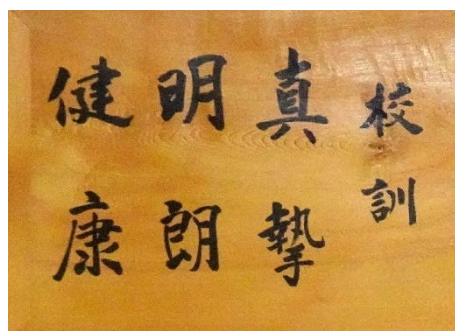 校訓
真摯
明朗
健康